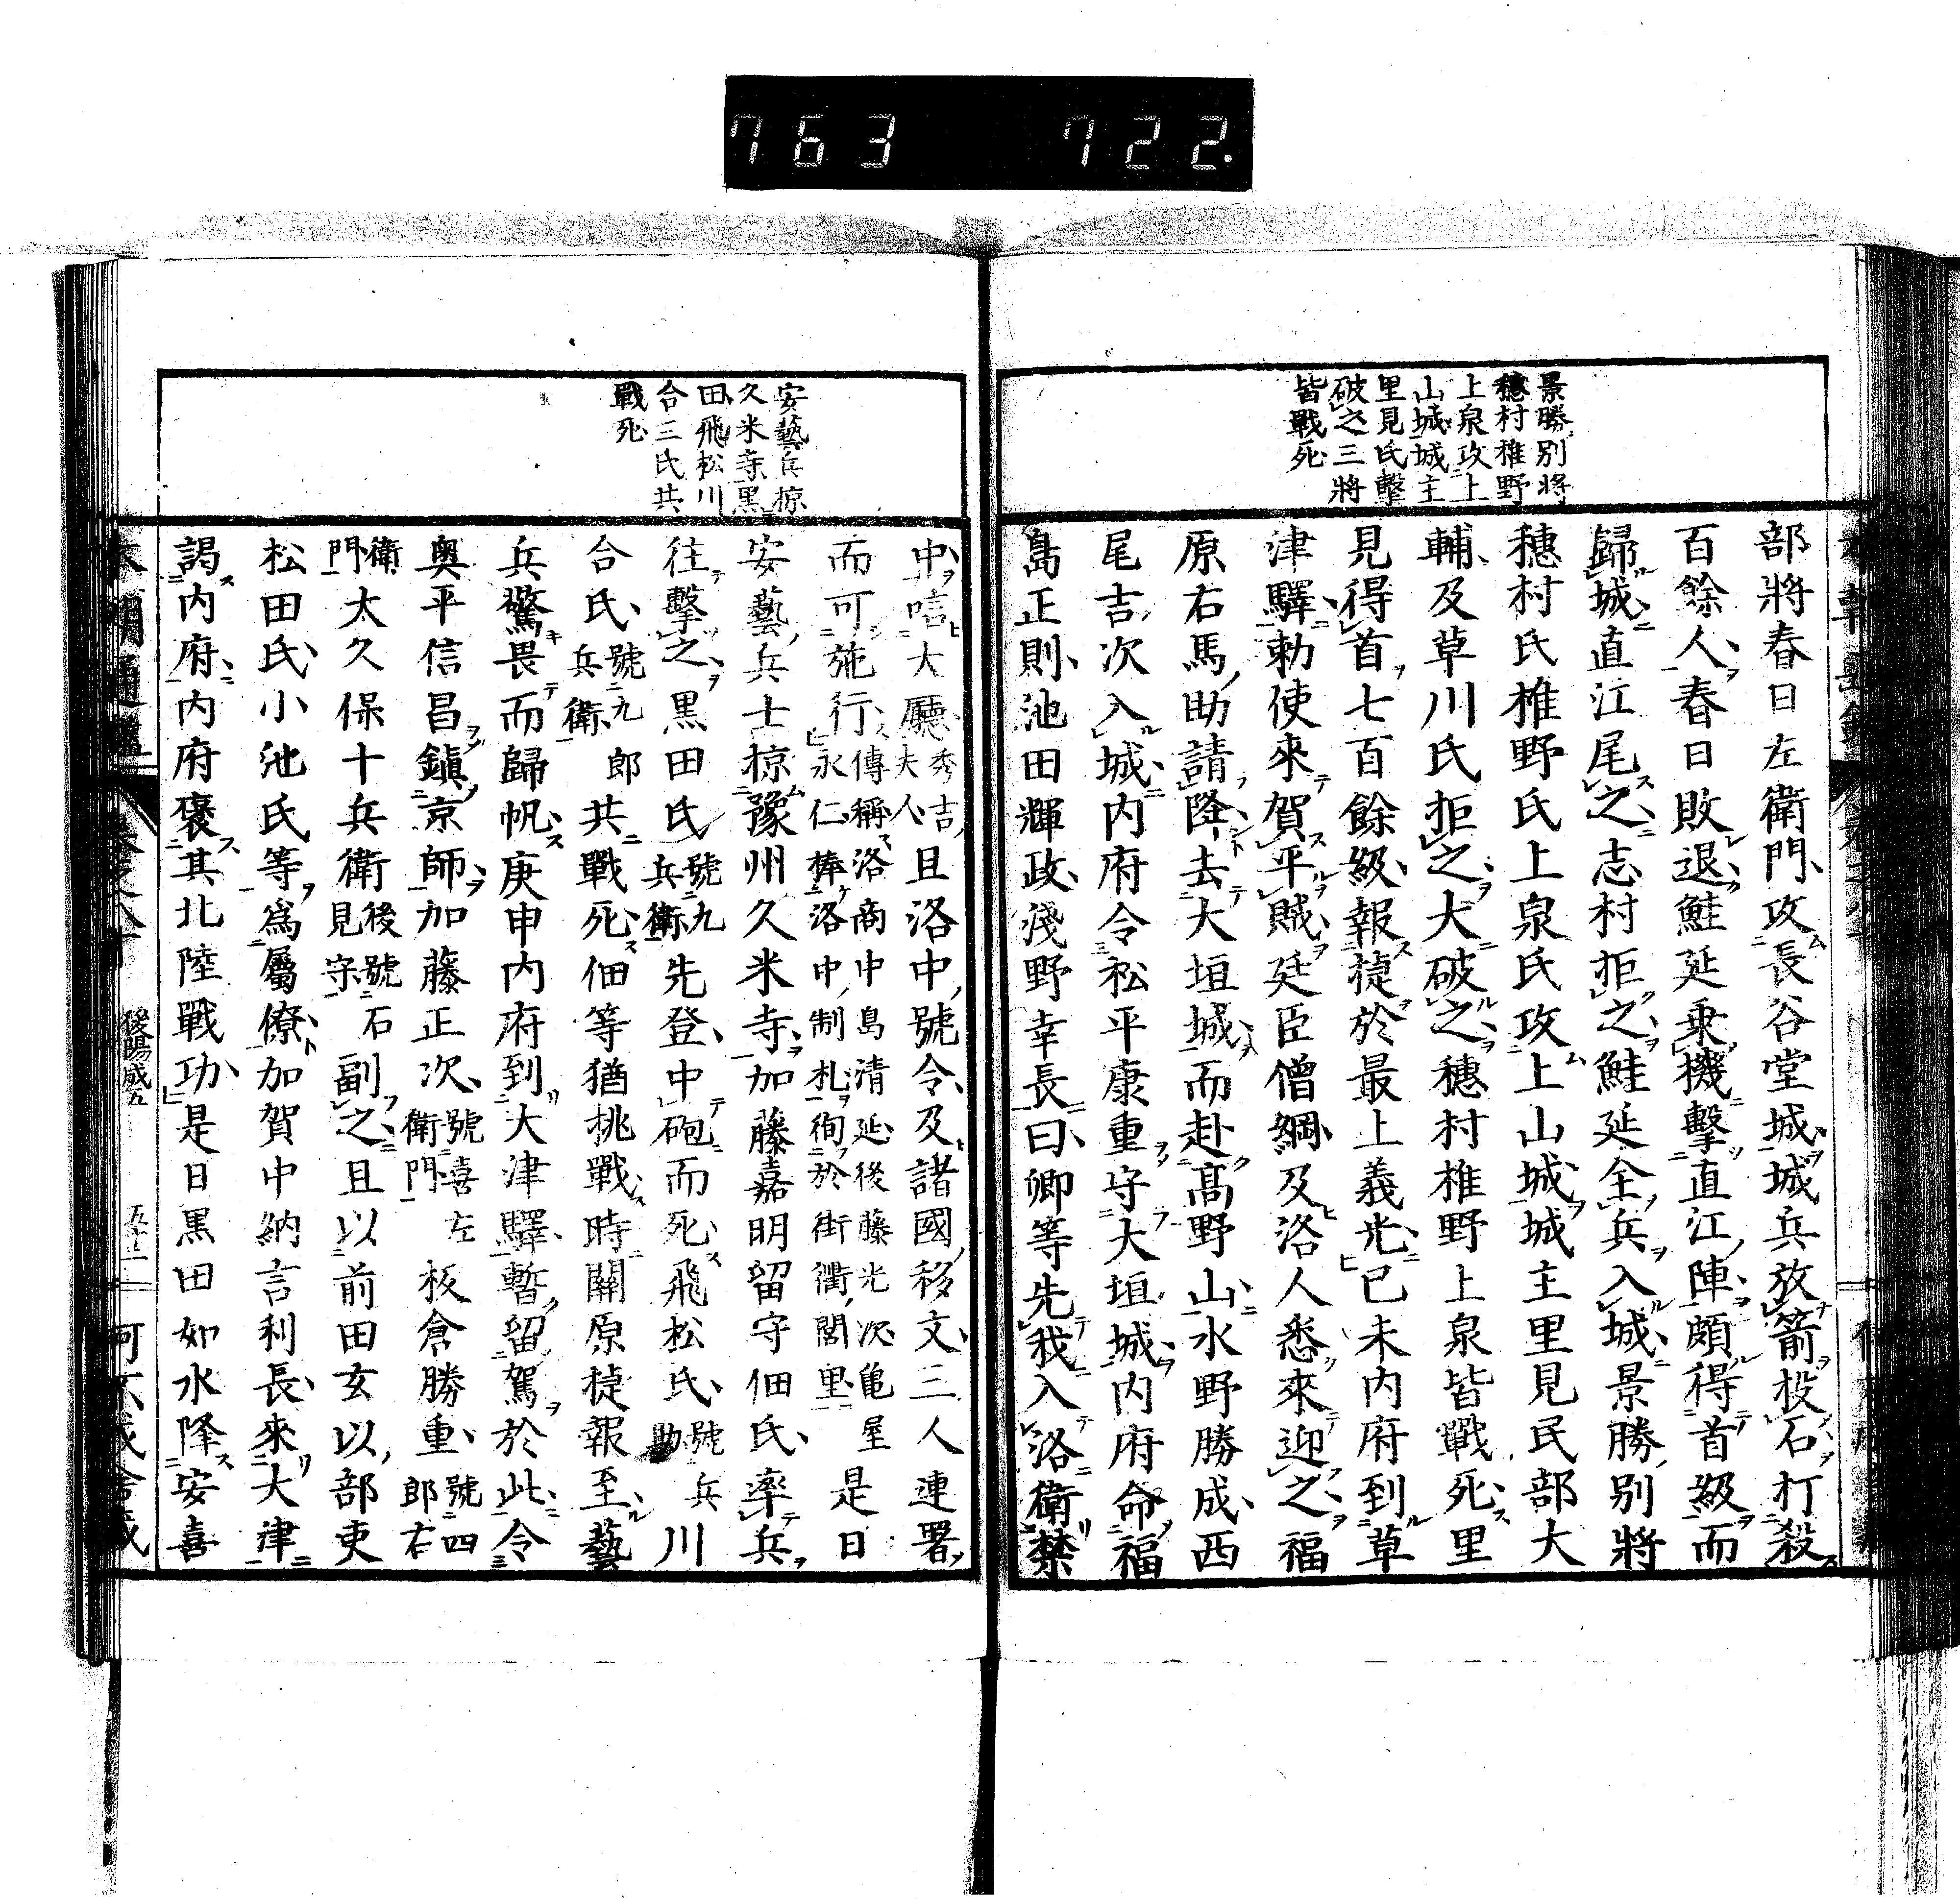 763 722.
景勝別將
穗村椎野
上泉攻上
山城城主
里見氏擊
破之三將
皆戰死
部將春日左衛門攻長谷堂城城兵放箭投石打殺
百餘人春日敗退鮭延乘機擊直江陣頗得首級而
歸城直江尾之志村拒之鮭延全兵入城景勝別將
穗村氏椎野氏上泉氏攻上山城城主里見民部大
輔及草川氏拒之大破之穗村椎野上泉皆戰死里
見得首七百餘級報捷於最上義光已未內府到草
津驛勅使來賀平賊廷臣僧綱及洛人悉來迎之福
原右馬助請降去大垣城而赴高野山水野勝成西
尾吉次入城內府令松平康重守大垣城內府命福
島正則池田輝政淺野幸長曰卿等先我入洛衛禁
安藝兵掠
久米寺黑
田飛松川
合三氏共
戰死
中唁大廳秀吉夫人且洛中號令及諸國移文三人連署
而可施行傳稱洛商中島清延後藤光次龜屋永仁捧洛中制札徇於街衢閭里是日
安藝兵士掠豫州久米寺加藤嘉明留守佃氏率兵
往擊之黑田氏號九兵衛先登中砲而死飛松氏號兵助川
合氏號九郎兵衛共戰死佃等猶挑戰時關原捷報至藝
兵驚畏而歸帆庚申內府到大津驛暫留駕於此令
奧平信昌鎭京師加藤正次號喜左衛門板倉勝重號四郎右
衛門太久保十兵衛後號石見守副之且以前田玄以部吏
松田氏小池氏等爲屬僚加賀中納言利長來大津
謁內府內府褒其北陸戰功是日黑田如水降安喜
後陽成五